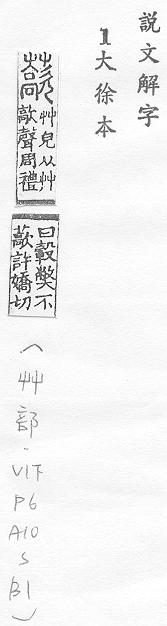 説文解字
1大徐本
藃 艸皃从艸
歊聲周禮
曰轂獘不
藃許嬌切
(艸部·V1下 P6 A10 S B1)